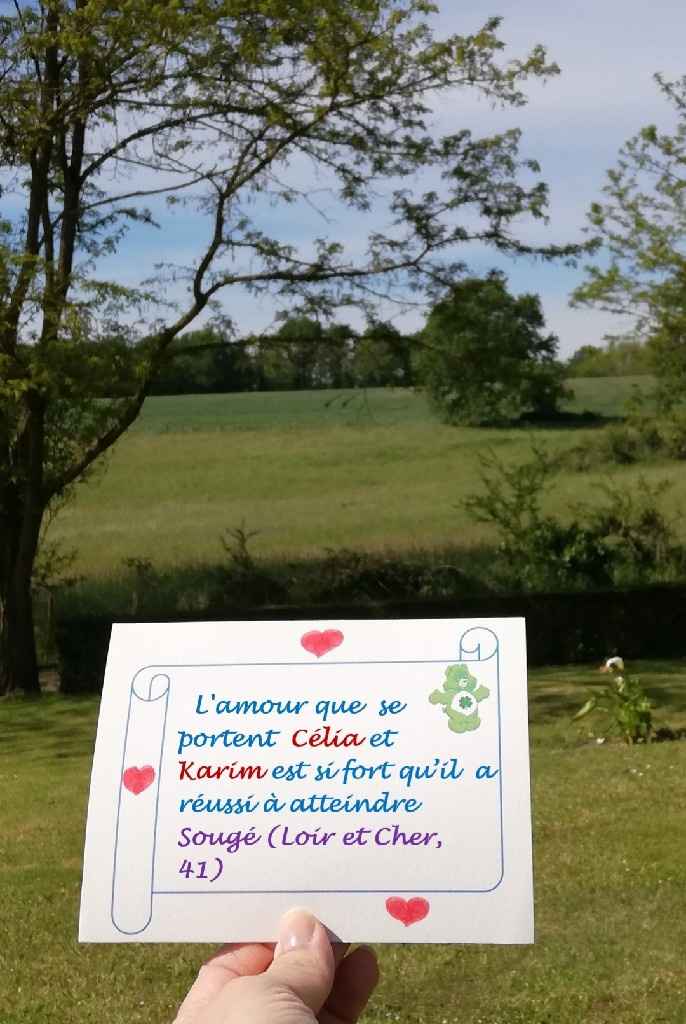 L'amour que se
portent Célia et
Karim est si fort qu'il a
réussi à atteindre
Sougé (Loir et Cher,
41)